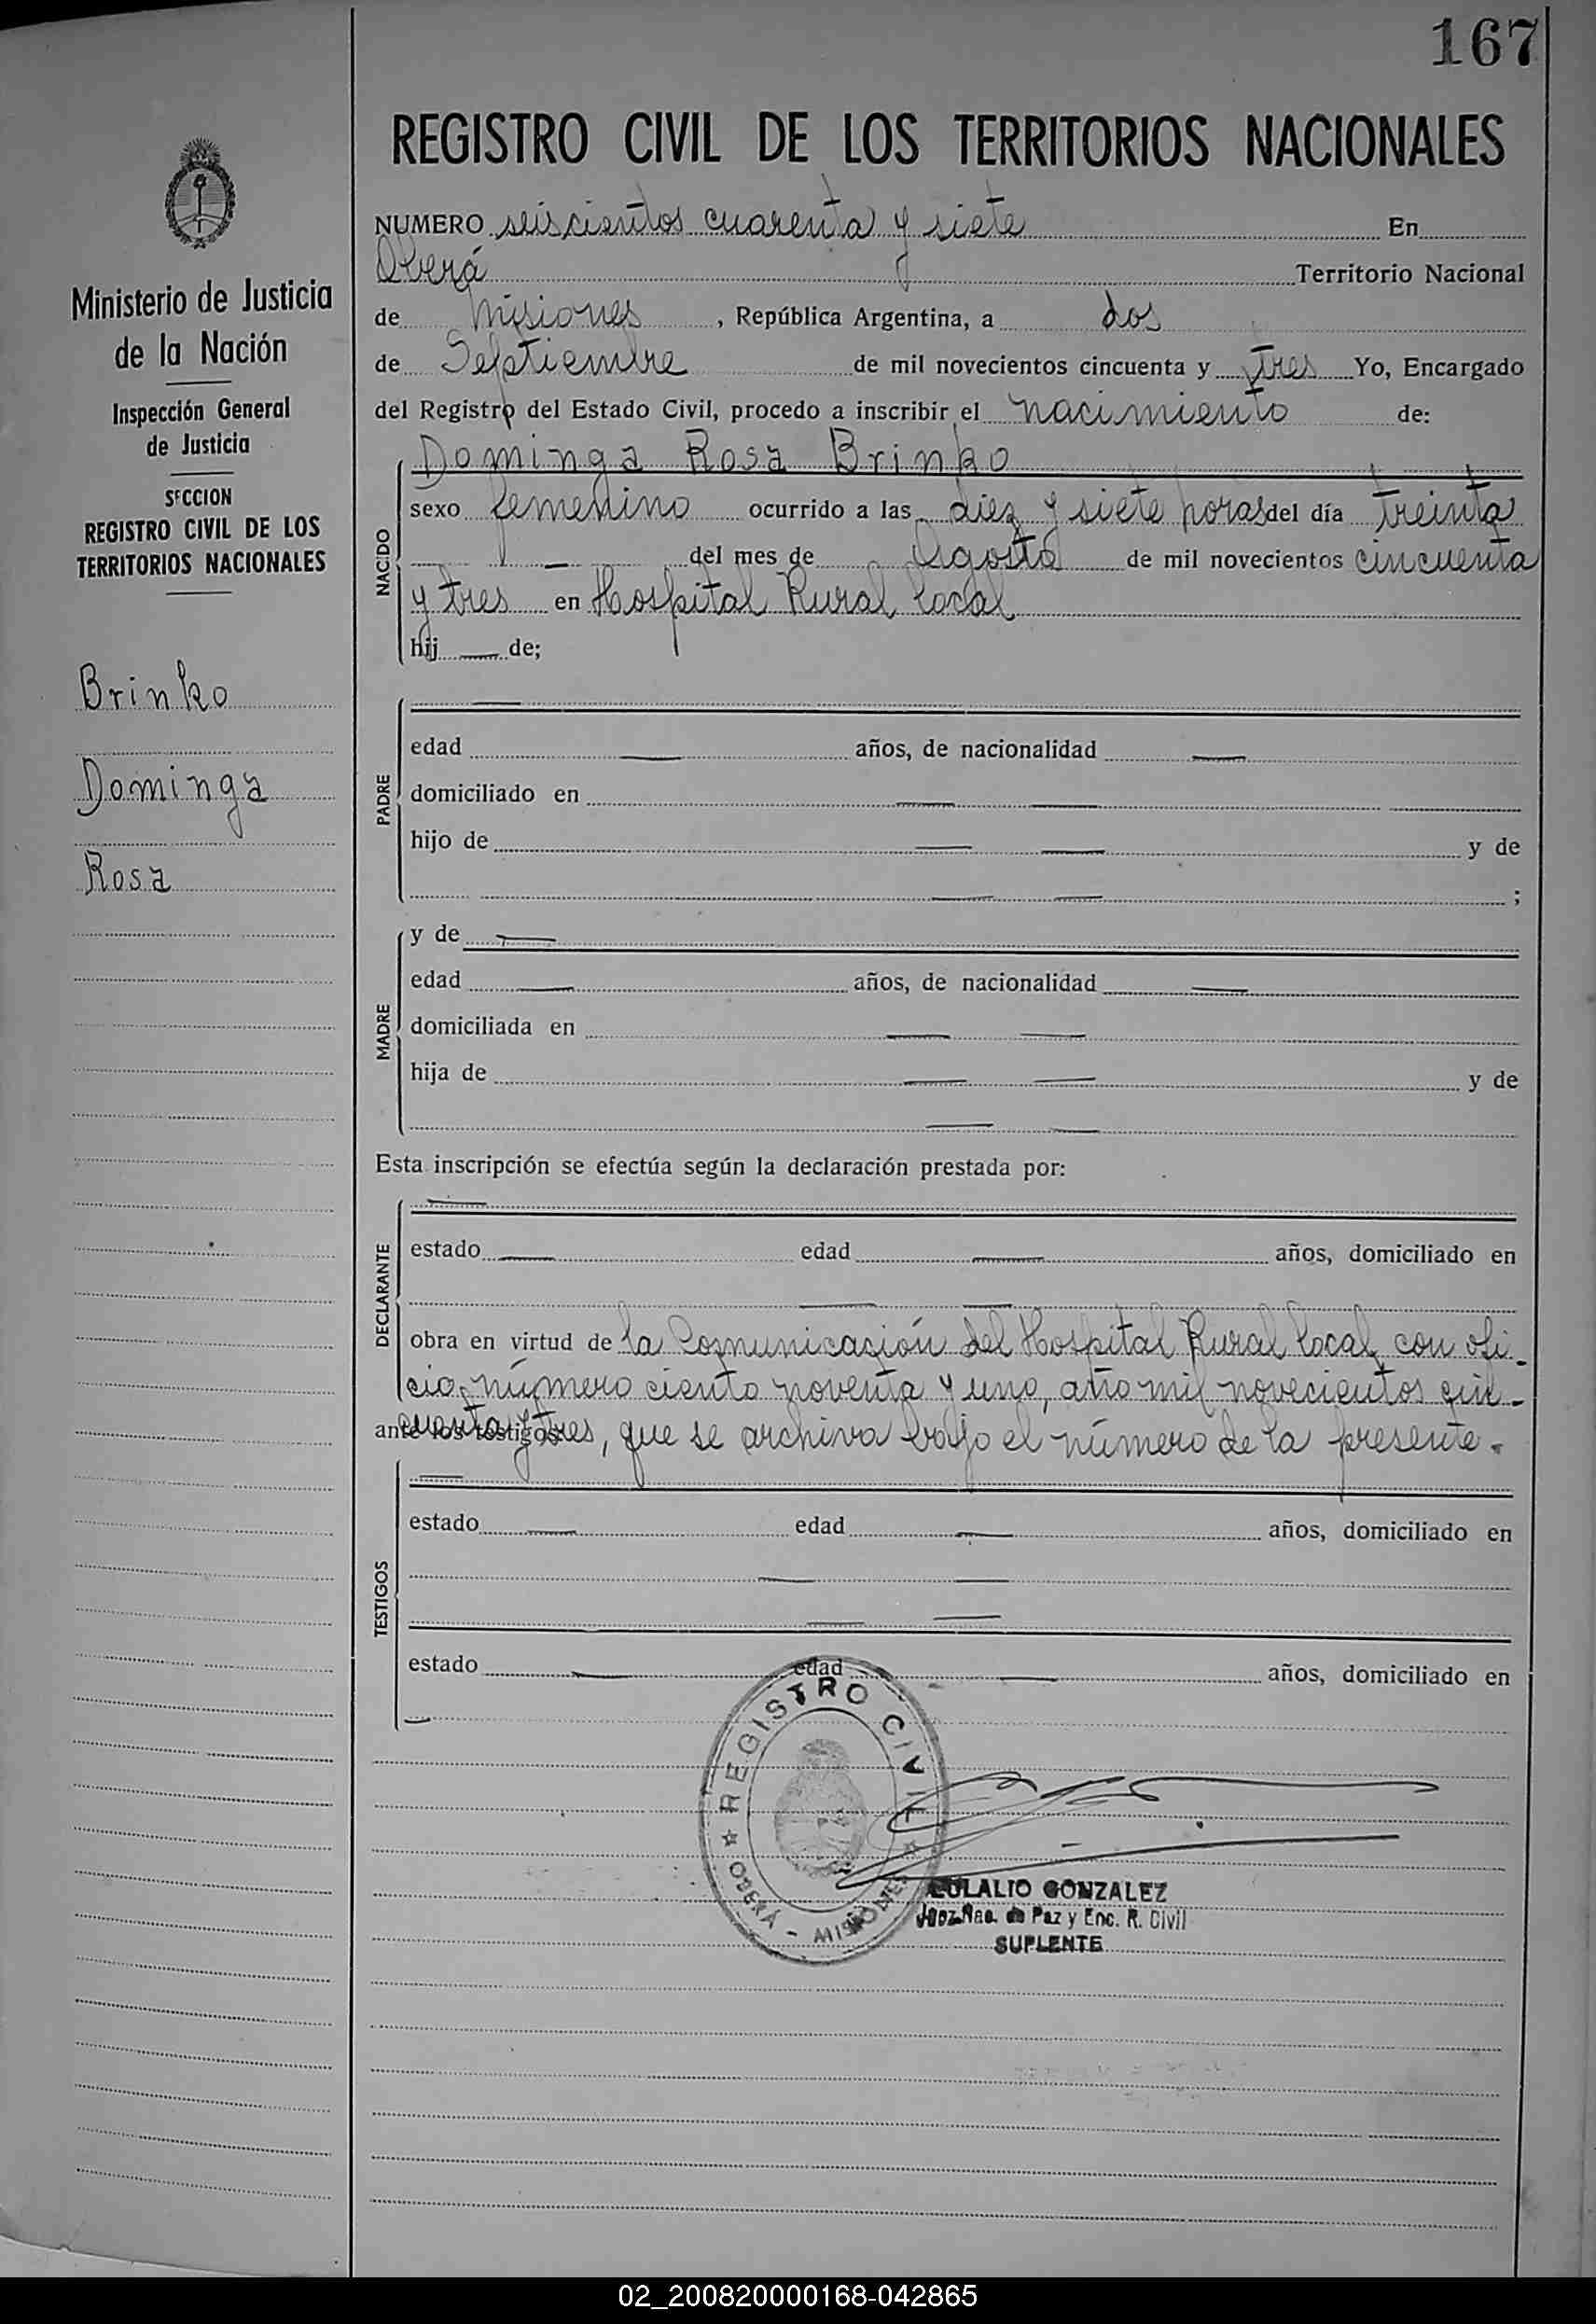 167
REGISTRO CIVIL DE LOS TERRITORIOS NACIONALES
Ministerio de Justicia
de la Nación
Inspección General
de Justicia
SECCION
REGISTRO CIVIL DE LOS
TERRITORIOS NACIONALES
Brinko
Dominga
Rosa
NUMERO seiscientos cuarenta y siete En
Oberá Territorio Nacional
de Misiones, República Argentina, a dos
de Septiembre de mil novecientos cincuenta y tres Yo, Encargado
del Registro del Estado Civil, procedo a inscribir el nacimiento de:
Dominga Rosa Brinko
NACIDO
sexo femenino ocurrido a las diez y siete horas del día treinta
— del mes de Agosto de mil novecientos cincuenta
y tres en Hospital Rural local
hij — de;
PADRE
—
edad — años, de nacionalidad —
domiciliado en — —
hijo de — — y de
— — ;
MADRE
y de —
edad — años, de nacionalidad —
domiciliada en — —
hija de — — y de
— —
Esta inscripción se efectúa según la declaración prestada por:
DECLARANTE
—
estado — edad — años, domiciliado en
— —
obra en virtud de la Comunicación del Hospital Rural local, con ofi-
cio número ciento noventa y uno, año mil novecientos cin-
ante los testigos
cuenta y tres, que se archiva bajo el número de la presente.-
TESTIGOS
—
estado — edad — años, domiciliado en
— —
— —
estado — edad — años, domiciliado en
—
REGISTRO CIVIL
OBERÁ - MISIONES
EULALIO GONZALEZ
Juez Nac. de Paz y Enc. R. Civil
SUPLENTE
02_200820000168-042865